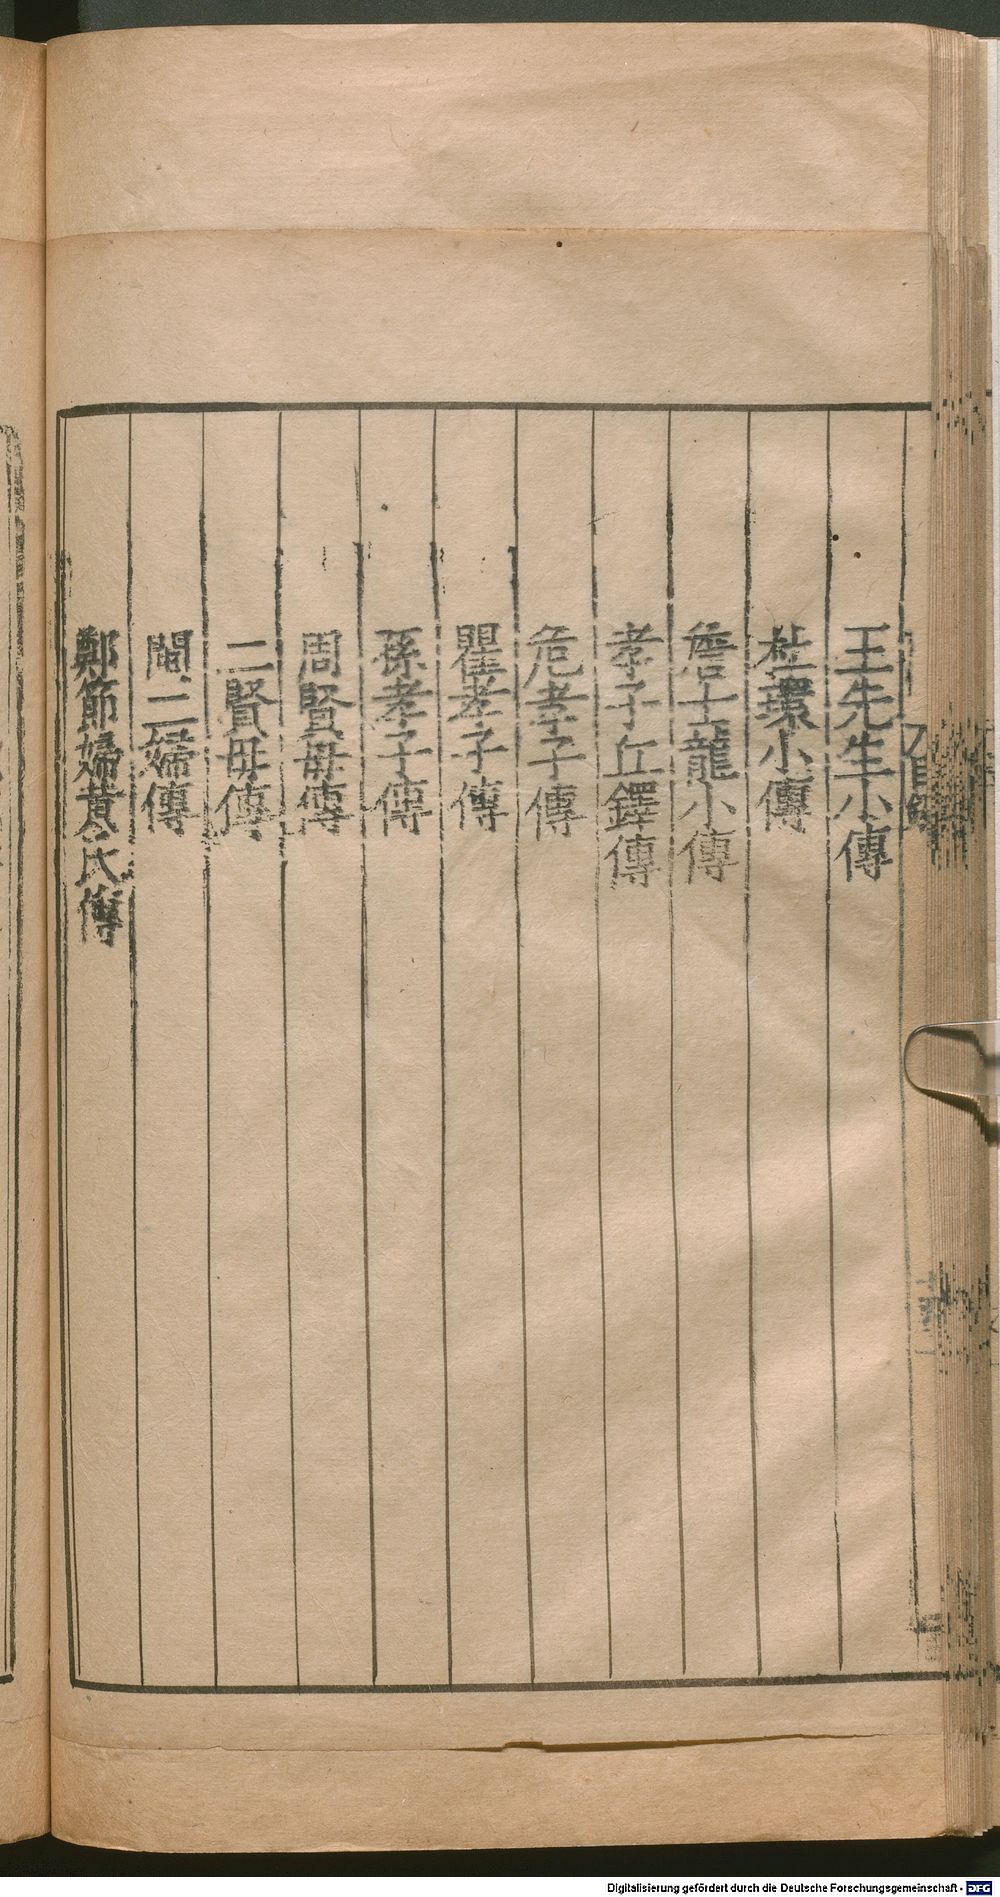 王先生小傳
杜環小傳
詹士龍小傳
孝子丘鐸傳
危孝子傳
瞿孝子傳
孫孝子傳
周賢母傳
二賢母傳
閩二婦傳
鄭節婦黃氏傳
目錄
Digitalisierung gefördert durch die Deutsche Forschungsgemeinschaft - DFG